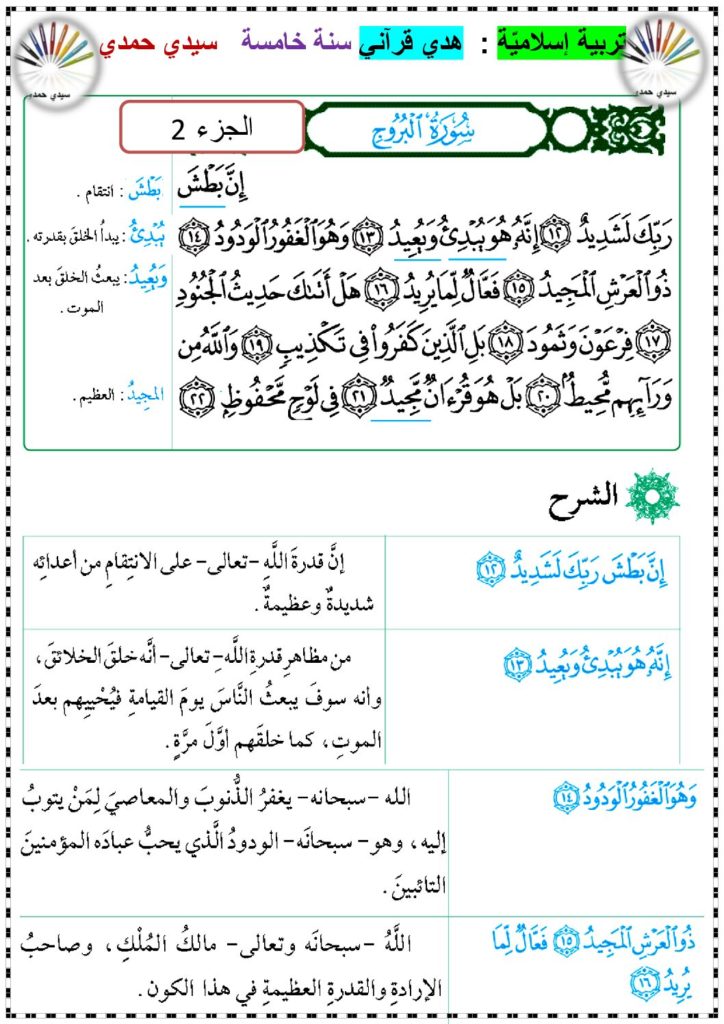 تربية إسلاميّة : هدي قرآني سنة خامسة سيدي حمدي
سيدي حمدي
سيدي حمدي
سُورَةُ الْبُرُوجِ
الجزء 2
إِنَّ بَطْشَ
رَبِّكَ لَشَدِيدٌ ۝١٢ إِنَّهُۥ هُوَ يُبْدِئُ وَيُعِيدُ ۝١٣ وَهُوَ ٱلْغَفُورُ ٱلْوَدُودُ ۝١٤
ذُو ٱلْعَرْشِ ٱلْمَجِيدُ ۝١٥ فَعَّالٌ لِّمَا يُرِيدُ ۝١٦ هَلْ أَتَىٰكَ حَدِيثُ ٱلْجُنُودِ
۝١٧ فِرْعَوْنَ وَثَمُودَ ۝١٨ بَلِ ٱلَّذِينَ كَفَرُوا۟ فِى تَكْذِيبٍ ۝١٩ وَٱللَّهُ مِن
وَرَآئِهِم مُّحِيطٌۢ ۝٢٠ بَلْ هُوَ قُرْءَانٌ مَّجِيدٌ ۝٢١ فِى لَوْحٍ مَّحْفُوظٍۭ ۝٢٢
بَطْشَ : انتقام .
يُبْدِئُ : يبدأُ الخلقَ بقدرته .
وَيُعِيدُ : يبعثُ الخلقَ بعد
الموت .
المجِيدُ : العظيم .
الشرح
إِنَّ بَطْشَ رَبِّكَ لَشَدِيدٌ ۝١٢
إنَّ قدرةَ اللَّهِ -تعالى- على الانتِقامِ من أعدائِه
شديدةٌ وعظيمةٌ.
إِنَّهُۥ هُوَ يُبْدِئُ وَيُعِيدُ ۝١٣
من مظاهرِ قدرةِ اللَّه-ِ تعالى- أنَّه خلقَ الخلائقَ،
وأنه سوفَ يبعثُ النَّاسَ يومَ القيامةِ فيُحْيِيهم بعدَ
الموتِ، كما خلقَهم أوَّلَ مرَّةٍ.
وَهُوَ ٱلْغَفُورُ ٱلْوَدُودُ ۝١٤
الله -سبحانه- يغفرُ الذُّنوبَ والمعاصيَ لِمَنْ يتوبُ
إليه، وهو- سبحانَه- الودودُ الَّذي يحبُّ عبادَه المؤمنينَ
التائبينَ.
ذُو ٱلْعَرْشِ ٱلْمَجِيدُ ۝١٥ فَعَّالٌ لِّمَا
يُرِيدُ ۝١٦
اللَّهُ -سبحانَه وتعالى- مالكُ المُلْكِ، وصاحبُ
الإرادةِ والقدرةِ العظيمةِ في هذا الكون.